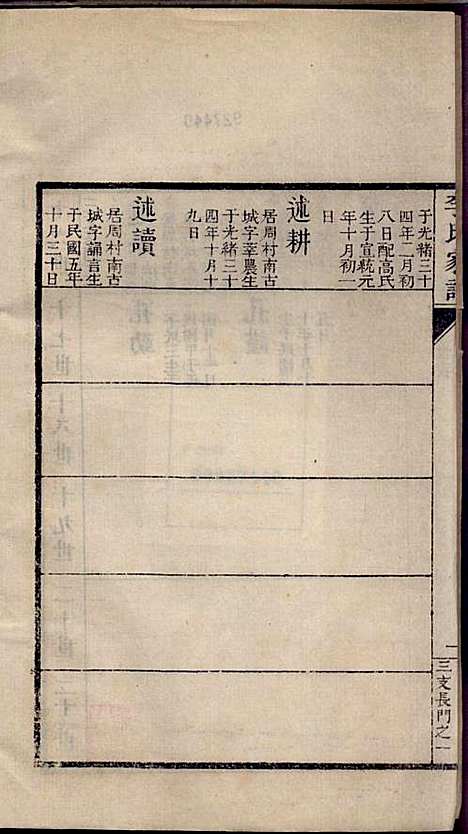 李氏家譜
于光緒三十
四年二月初
八日配高氏
生于宣統元
年十月初一
日
述耕
居周村南古
城字莘農生
于光緒三十
四年十月十
九日
述讀
居周村南古
城字誦言生
于民國五年
十月三十日
三支長門之一